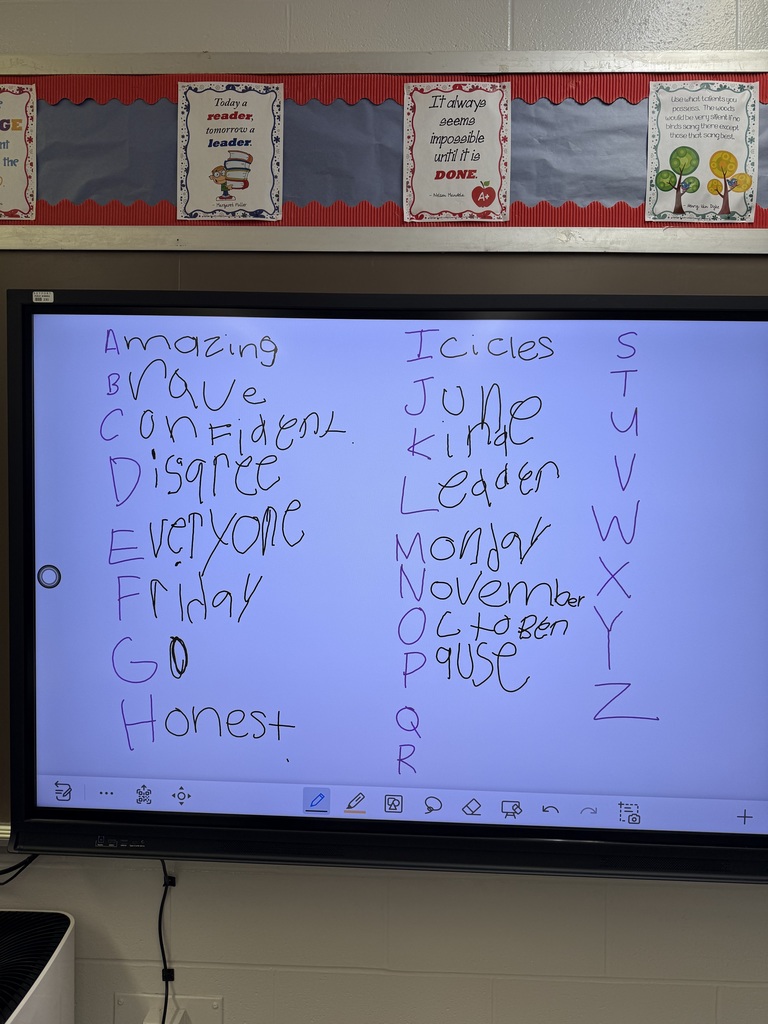 GE
nt
the
Today a
reader,
tomorrow a
leader.
- Margaret Fuller
It always
seems
impossible
until it is
DONE.
- Nelson Mandela
A+
Use what talents you
possess. The woods
would be very silent if no
birds sang there except
those that sang best.
- Henry Van Dyke
Amazing
Brave
Confident.
Disgree
Everyone
Friday
Go
Honest.
Icicles
June
Kind
Leader
Monday
November
OctoBer
Pause
Q
R
S
T
U
V
W
X
Y
Z